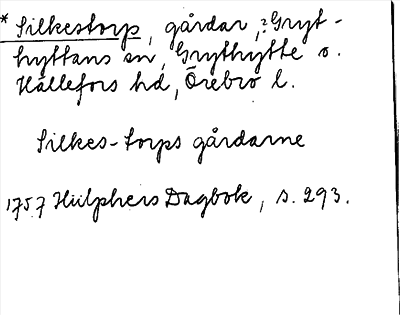 * Silkestorp, gårdar, ? Gryt-
hyttans sn, Grythytte o.
Hällefors hd, Örebro l.
Silkes-torps gårdarne
1757 Hülphers Dagbok, s. 293.